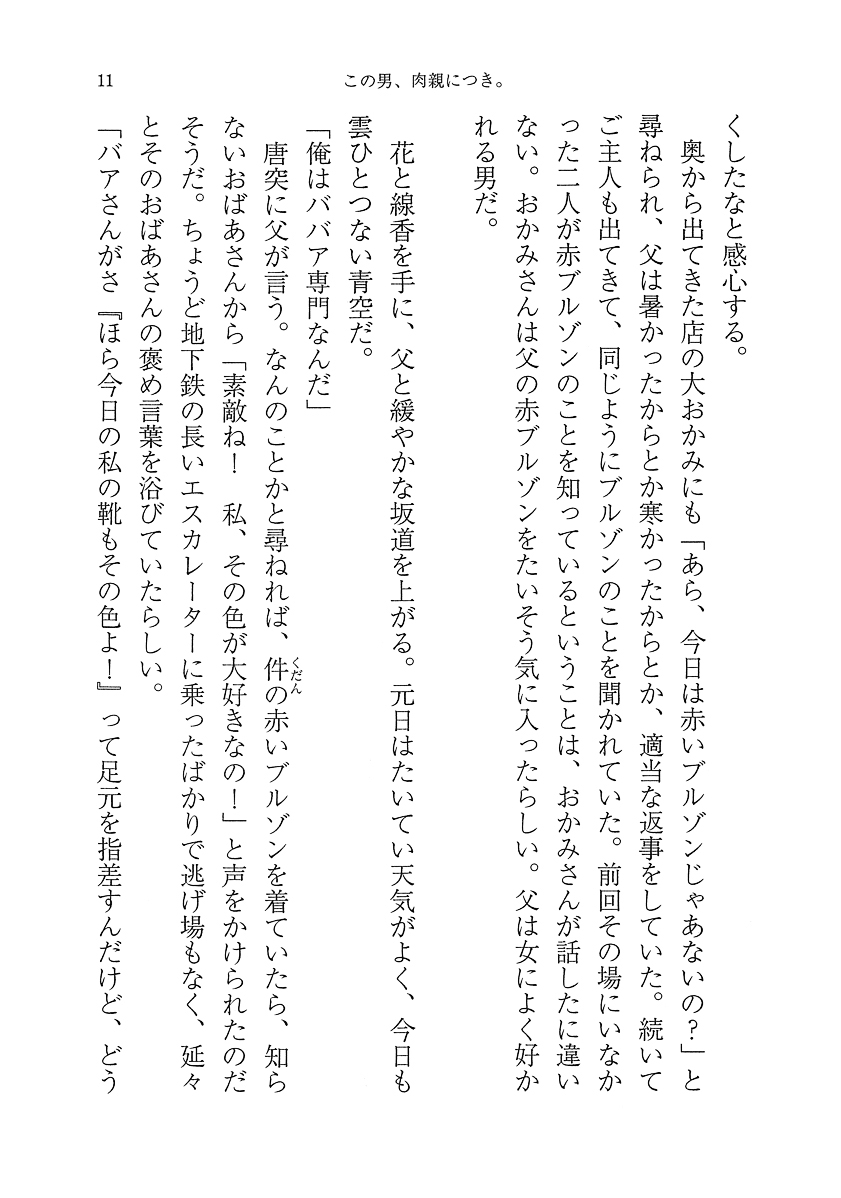 11
この男、肉親につき。
くしたなと感心する。
　奥から出てきた店の大おかみにも「あら、今日は赤いブルゾンじゃあないの？」と
尋ねられ、父は暑かったからとか寒かったからとか、適当な返事をしていた。続いて
ご主人も出てきて、同じようにブルゾンのことを聞かれていた。前回その場にいなか
った二人が赤ブルゾンのことを知っているということは、おかみさんが話したに違い
ない。おかみさんは父の赤ブルゾンをたいそう気に入ったらしい。父は女によく好か
れる男だ。
　花と線香を手に、父と緩やかな坂道を上がる。元日はたいてい天気がよく、今日も
雲ひとつない青空だ。
「俺はババア専門なんだ」
　唐突に父が言う。なんのことかと尋ねれば、件くだんの赤いブルゾンを着ていたら、知ら
ないおばあさんから「素敵ね！　私、その色が大好きなの！」と声をかけられたのだ
そうだ。ちょうど地下鉄の長いエスカレーターに乗ったばかりで逃げ場もなく、延々
とそのおばあさんの褒め言葉を浴びていたらしい。
「バアさんがさ『ほら今日の私の靴もその色よ！』って足元を指差すんだけど、どう